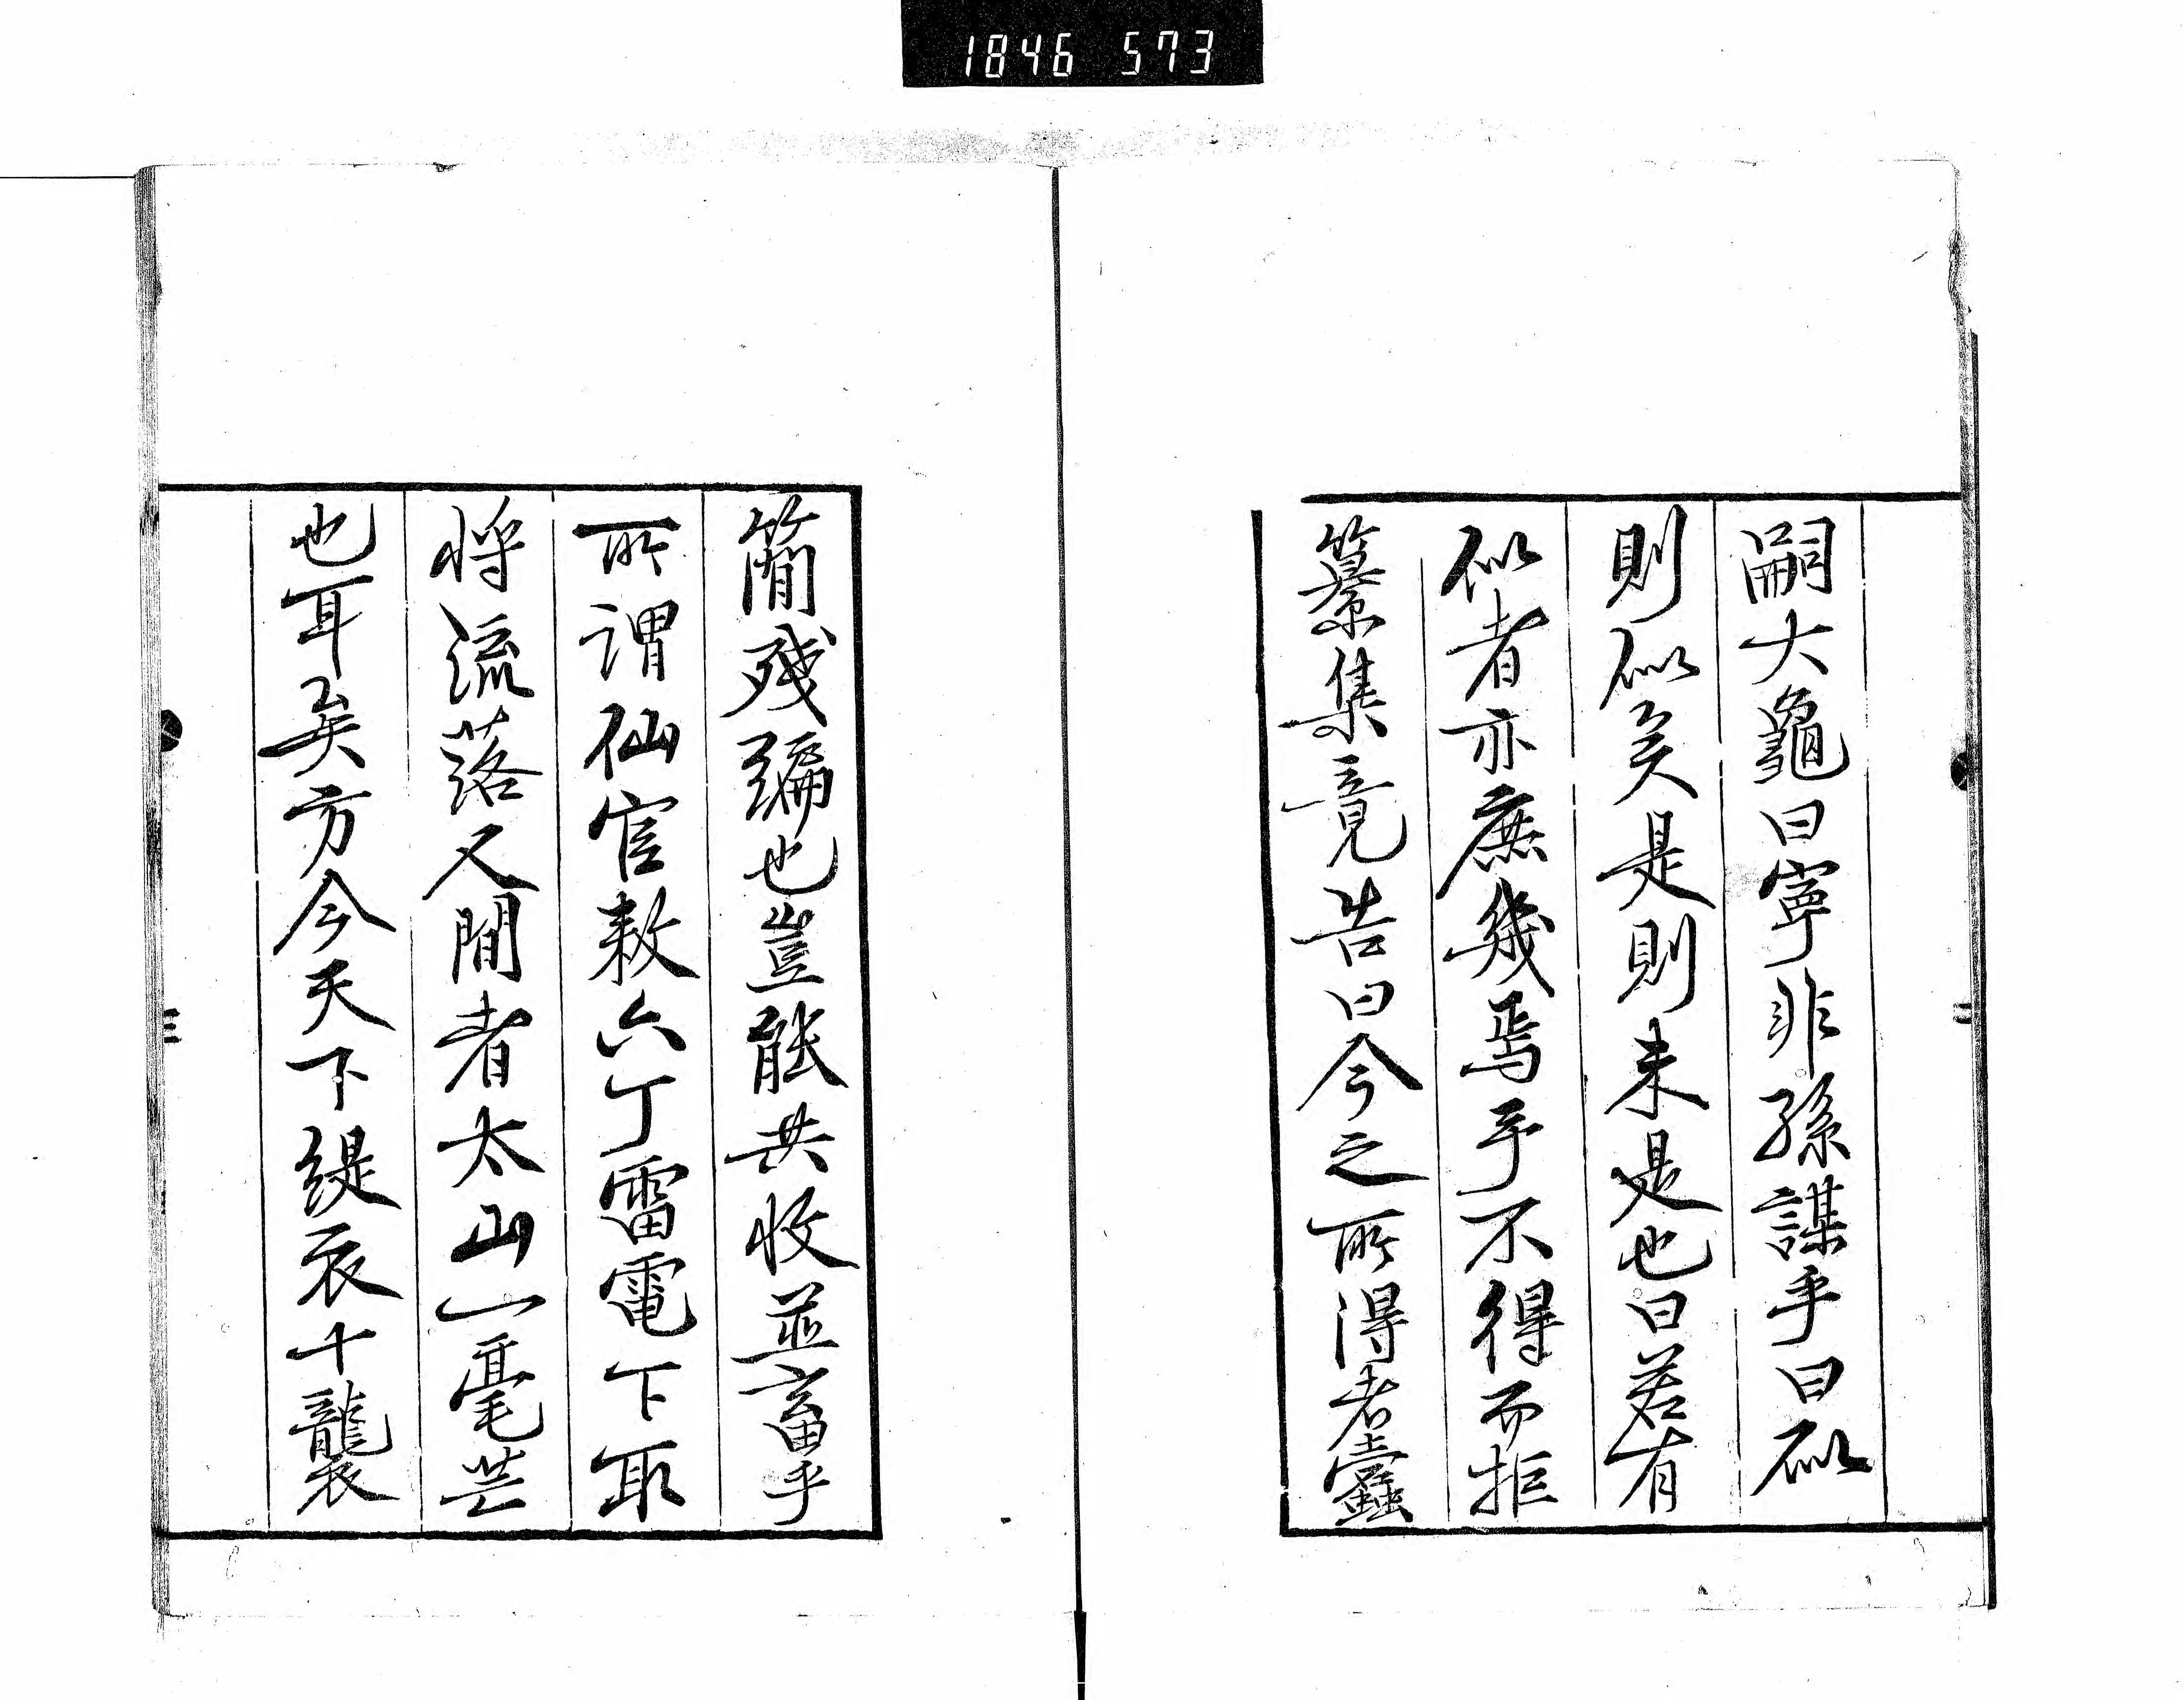 1846 573
嗣大龜曰寧非孫謀乎曰似
則似矣是則未是也曰若有
似者亦庶幾焉乎不得而拒
纂集竟告曰今之所得者蠹
簡殘編也豈能共收並畜乎
所謂仙官敕六丁雷電下取
将流落人間者太山一毫芒
也耳矣方今天下緹衣十襲
二
三